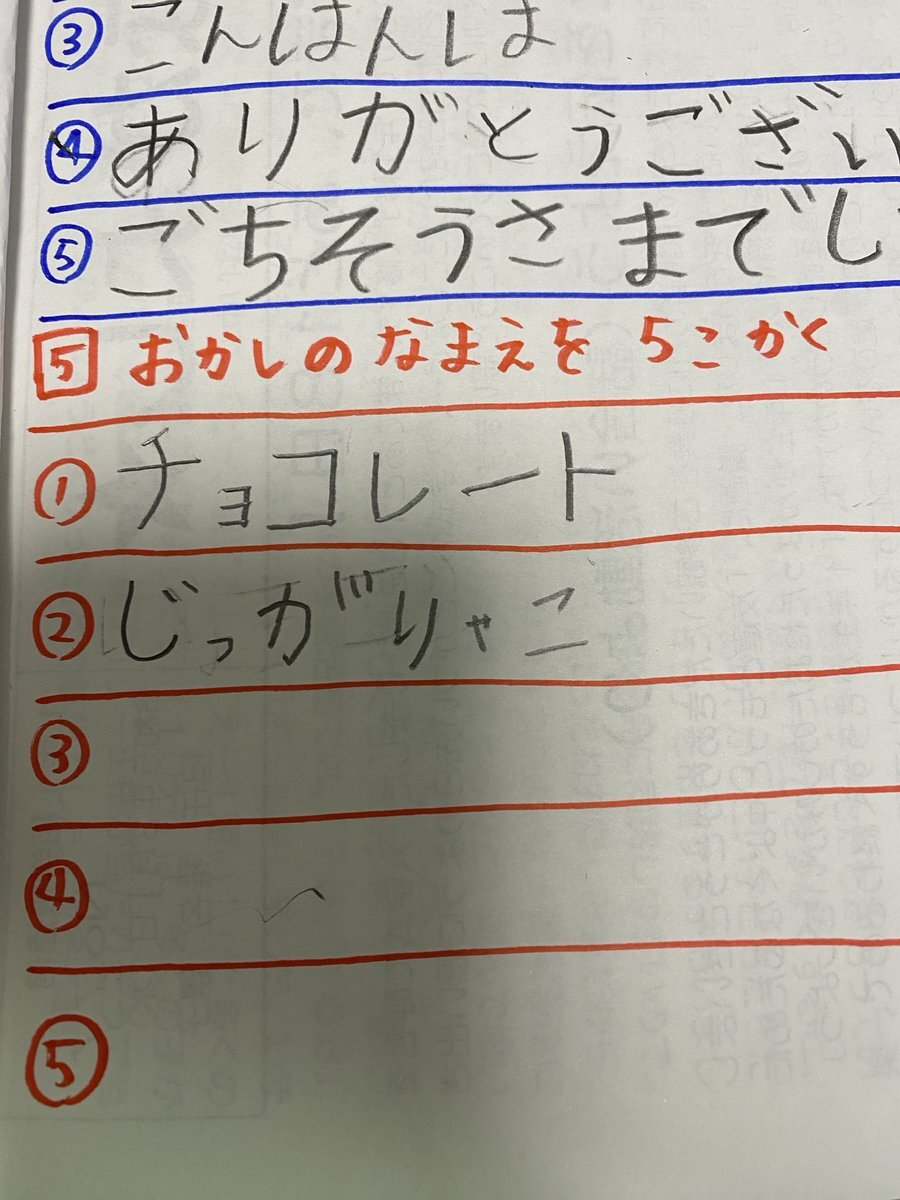 ③ こんはんしは
④ ありがとうござい
⑤ ごちそうさまでし
5 おかしのなまえを 5こ かく
① チョコレート
② じっがりゃこ
③
④
⑤